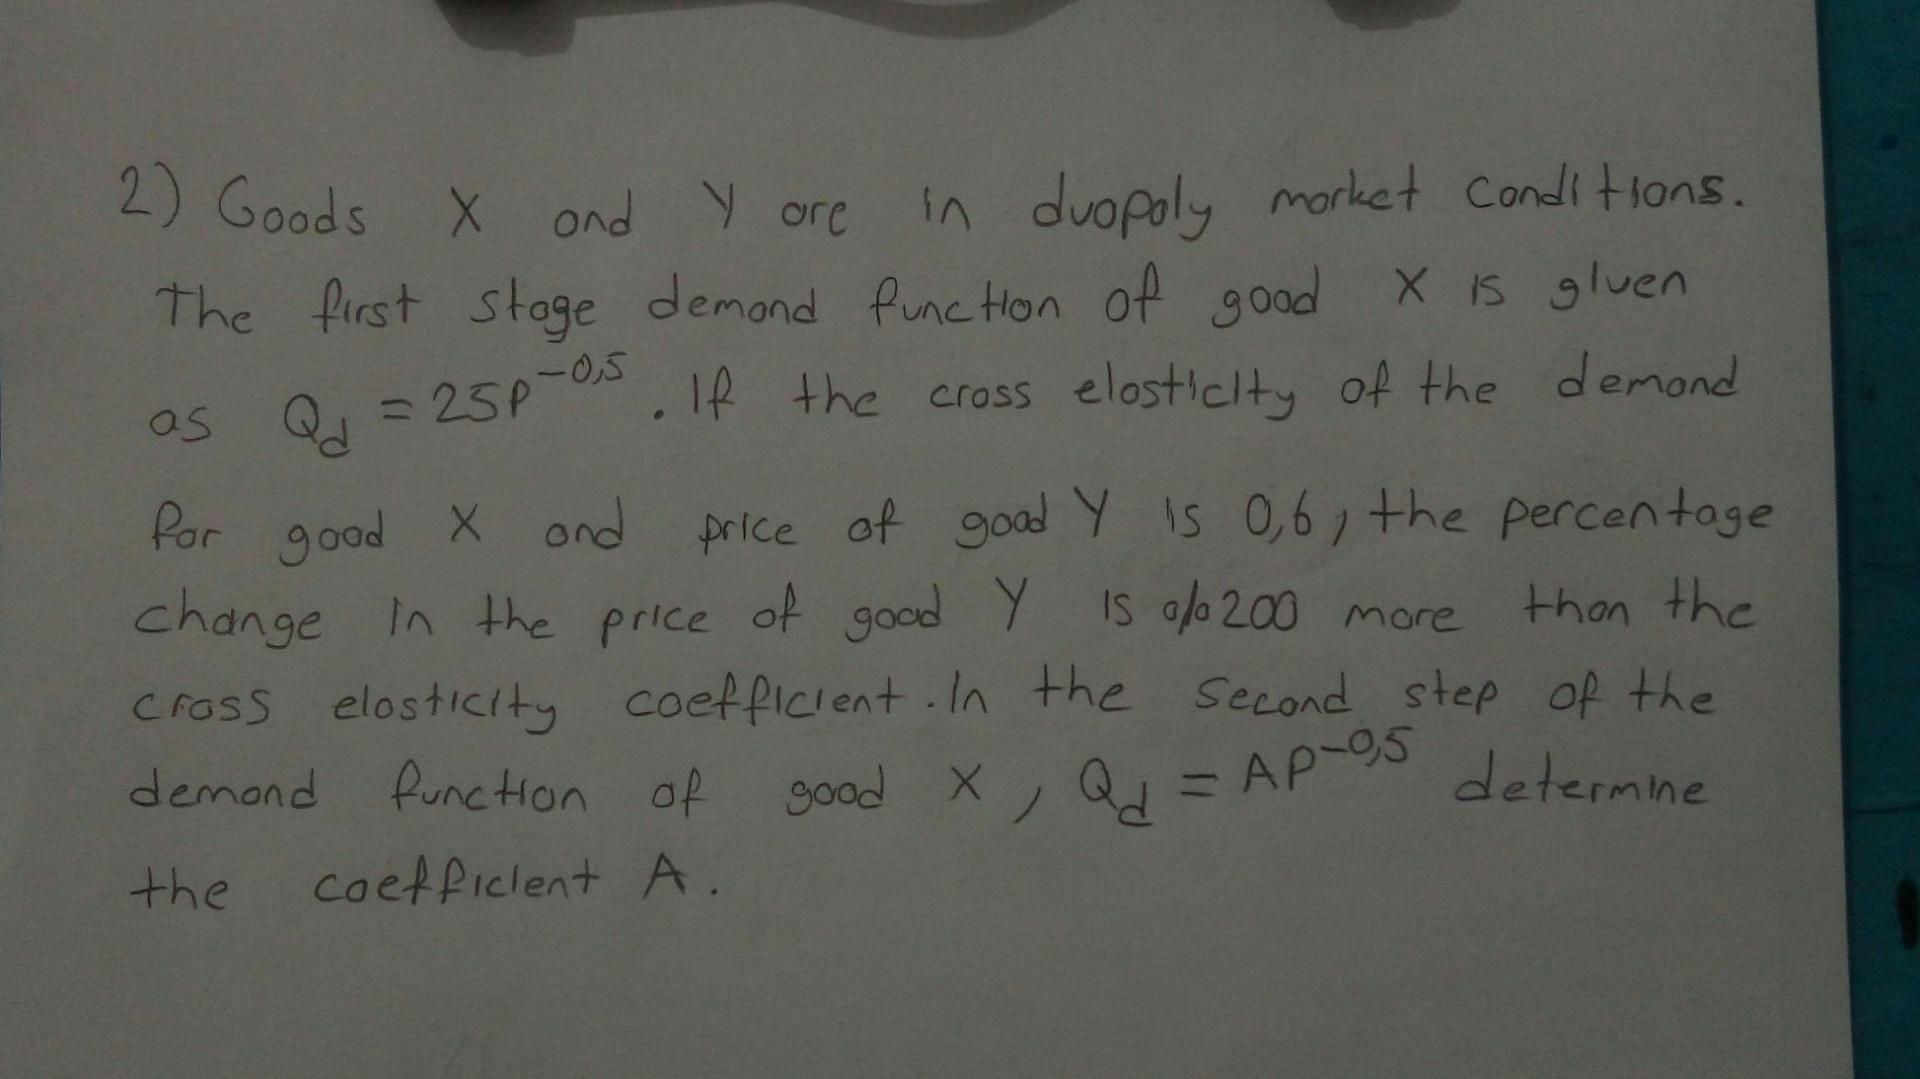 2) Goods X and Y are in duopoly market conditions.
The first stage demand function of good X is given
as Qd = 25P^-0,5. If the cross elasticity of the demand
for good X and price of good Y is 0,6, the percentage
change in the price of good Y is %200 more than the
cross elasticity coefficient. In the second step of the
demand function of good X, Qd = AP^-0,5 determine
the coefficient A.